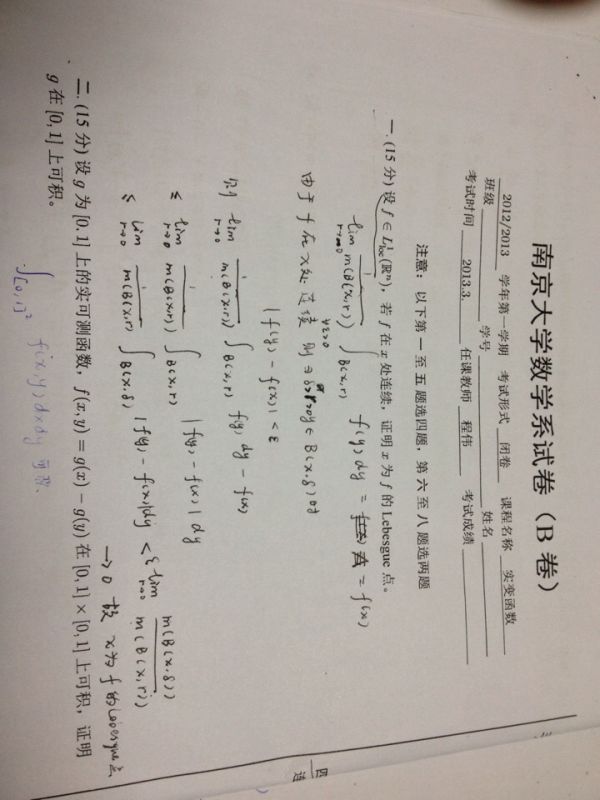 南京大学数学系试卷（B 卷）
2012/2013 学年第一学期 考试形式 闭卷 课程名称 实变函数
班级 学号 姓名
考试时间 2013.3. 任课教师 程伟 考试成绩
注意：以下第一至五题选四题，第六至八题选两题
一.(15 分) 设 f ∈ L¹loc(ℝⁿ)，若 f 在 x 处连续，证明 x 为 f 的 Lebesgue 点。
lim r→0 1/m(B(x,r)) ∫B(x,r) f(y)dy = f(x)
由于 f 在 x 处连续 则 ∀ε>0 ∃δ>0 当 y∈B(x,δ)时
|f(y) - f(x)| < ε
则 lim r→0 1/m(B(x,r)) ∫B(x,r) f(y)dy - f(x)
≤ lim r→0 1/m(B(x,r)) ∫B(x,r) |f(y) - f(x)| dy
≤ lim r→0 1/m(B(x,r)) ∫B(x,δ) |f(y) - f(x)|dy < ε lim r→0 m(B(x,δ))/m(B(x,r))
→0 故 x为 f 的Lebesgue点
二.(15 分) 设 g 为 [0,1] 上的实可测函数，f(x,y) = g(x) − g(y) 在 [0,1] × [0,1] 上可积，证明
g 在 [0,1] 上可积。
∫[0,1]² f(x,y)dxdy